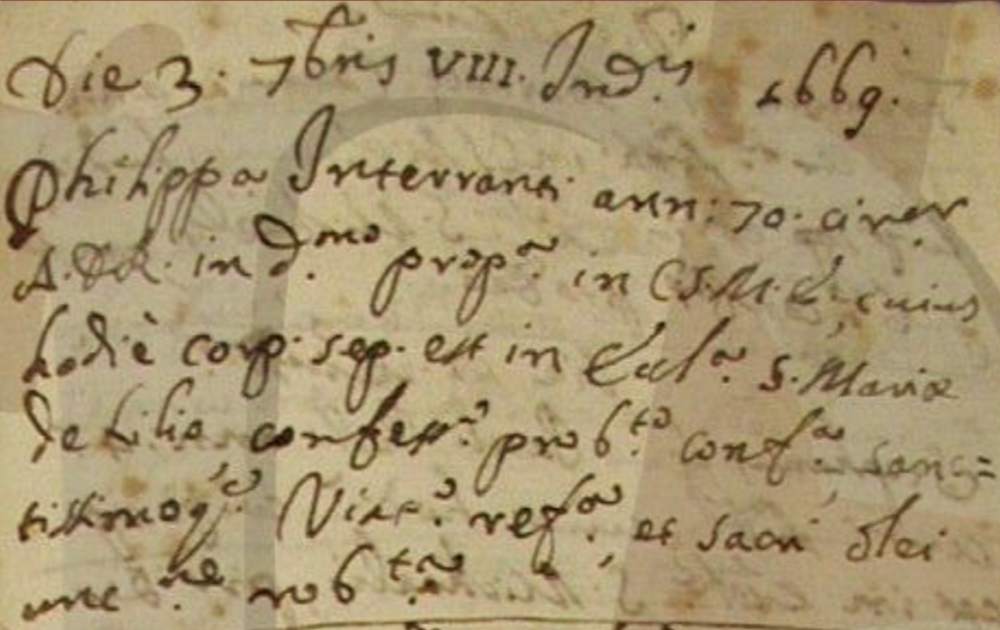 Die 3. 7bris VIII. Ind.is 1669.
Philippa Interranti ann: 70. circ.r
A.D.R. in d.mo prop.a in C.S.M.E. cuius
hodiè corp. sep. est in Eccl.a S. Maria
de Lilio confess.e pro b.to conf.a sanc=
tissimoq.e Viac.o ref.a, et sacri olei
unc.ne rob.ta